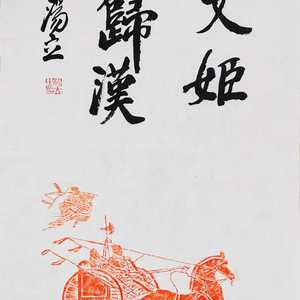 文姬
歸漢
湯立